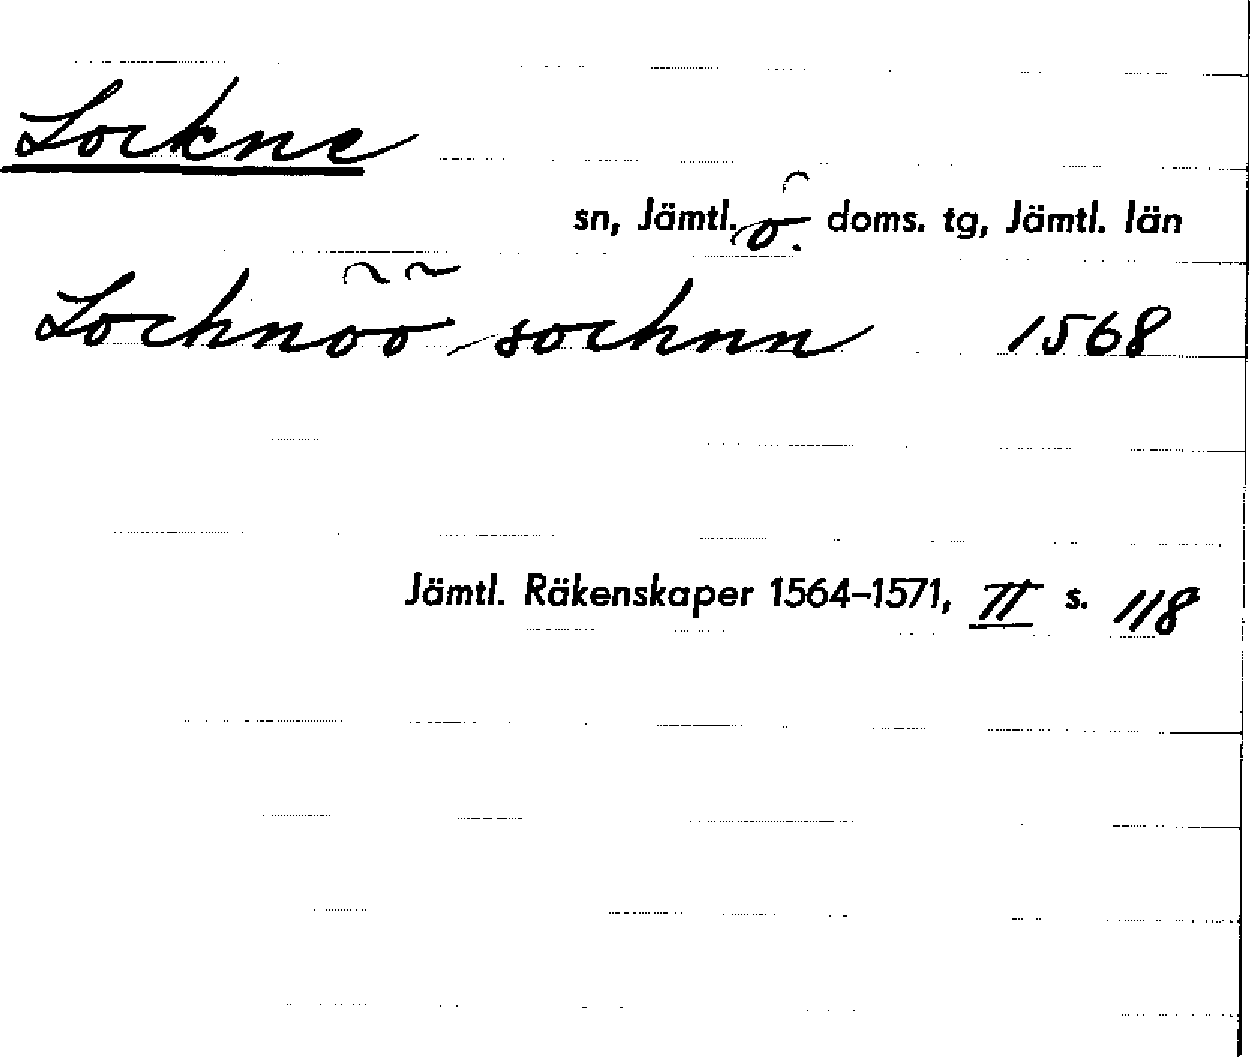 Lockne
sn, Jämtl. ö. doms. tg, Jämtl. län
Lochnöö sochnn 1568
Jämtl. Räkenskaper 1564-1571, II s. 118